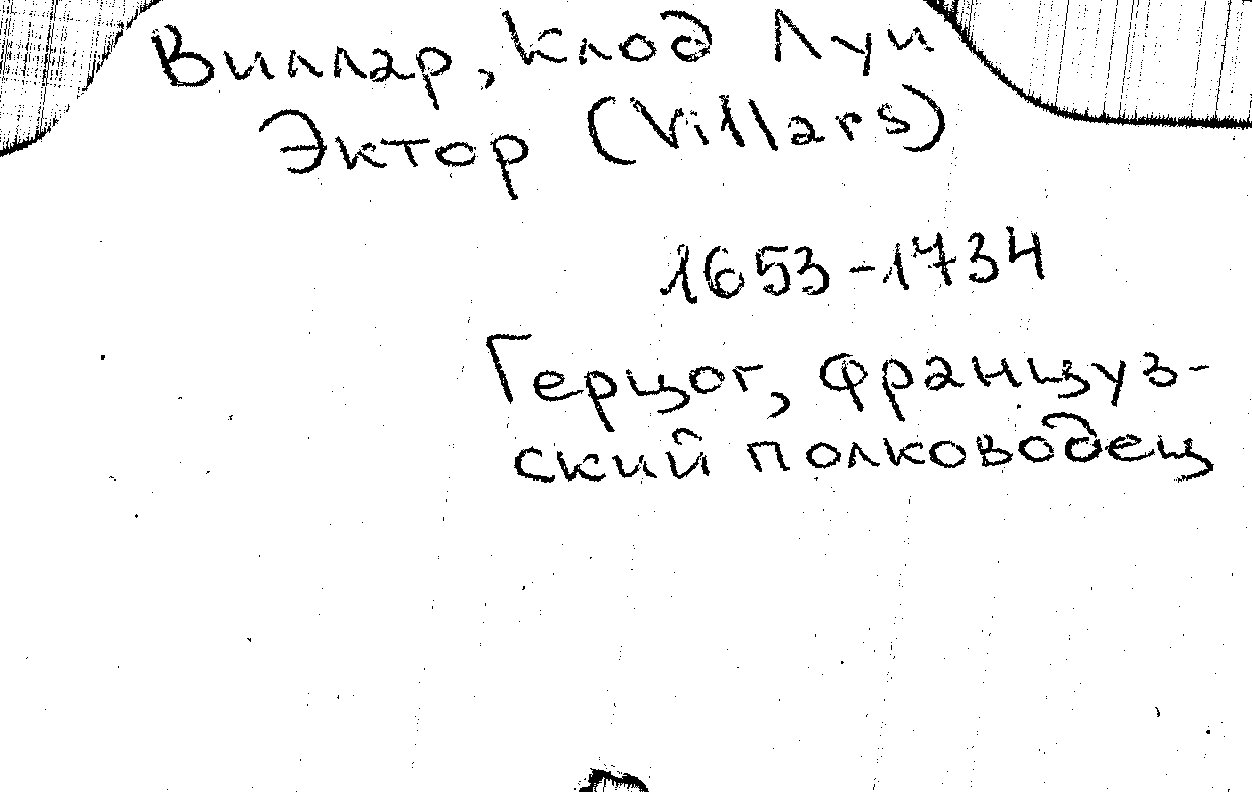 Виллар, Клод Луи
Эктор (Villars)
1653-1734
Герцог, француз-
ский полководец